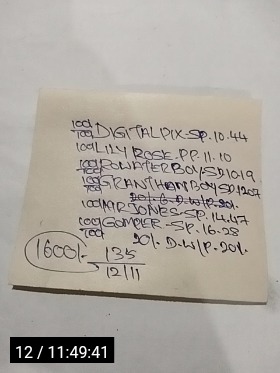 100/
100/ DIGITAL PIX-SP.10.44
100/ LILY ROSE-PP.11.10
100/
100/ ROWATERBOY-SP.10.19
100/
100/ GRANTHAM BOY-SP.12.07
100/ MR JONES-SP.14.47
100/
100/ GOMPER-SP.16.28
20/. D.W/P.20/.
1600/.
135
12/11
12 / 11:49:41